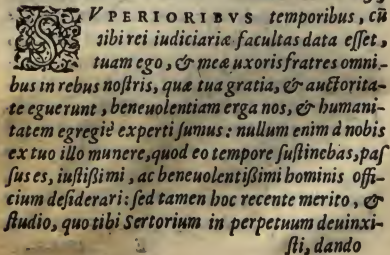 SVPERIORIBVS temporibus, cũ
tibi rei iudiciariæ facultas data esset,
tuam ego, & meæ uxoris fratres omni-
bus in rebus nostris, quæ tua gratia, & auctorita-
te eguerunt, beneuolentiam erga nos, & humani-
tatem egregiè experti sumus: nullum enim à nobis
ex tuo illo munere, quod eo tempore sustinebas, pas
sus es, iustißimi, ac beneuolentißimi hominis offi-
cium desiderari: sed tamen hoc recente merito, &
studio, quo tibi Sertorium in perpetuum deuinxi-
sti, dando